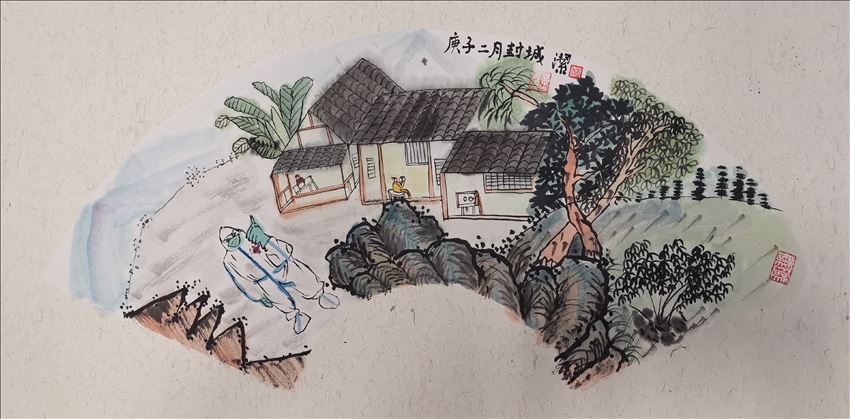 庚子二月封城 潔